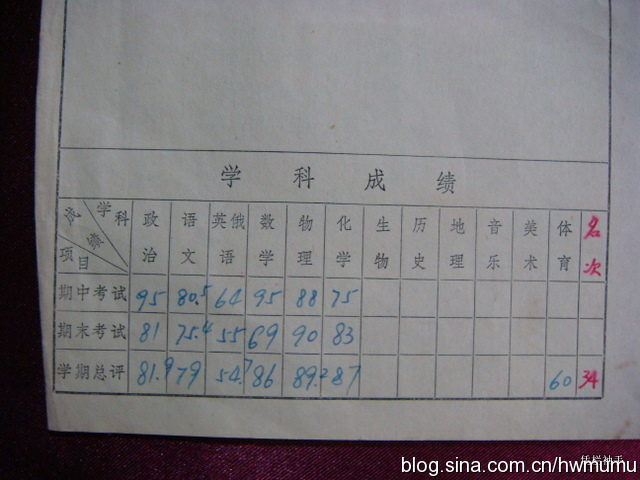 学科成绩
成绩 学科 项目 政治 语文 英俄语 数学 物理 化学 生物 历史 地理 音乐 美术 体育 名次
期中考试 95 80.5 64 95 88 75
期末考试 81 75.4 55 69 90 83
学期总评 81.9 79 54.7 86 89.2 87 60 34
凭栏袖手
blog.sina.com.cn/hwmumu